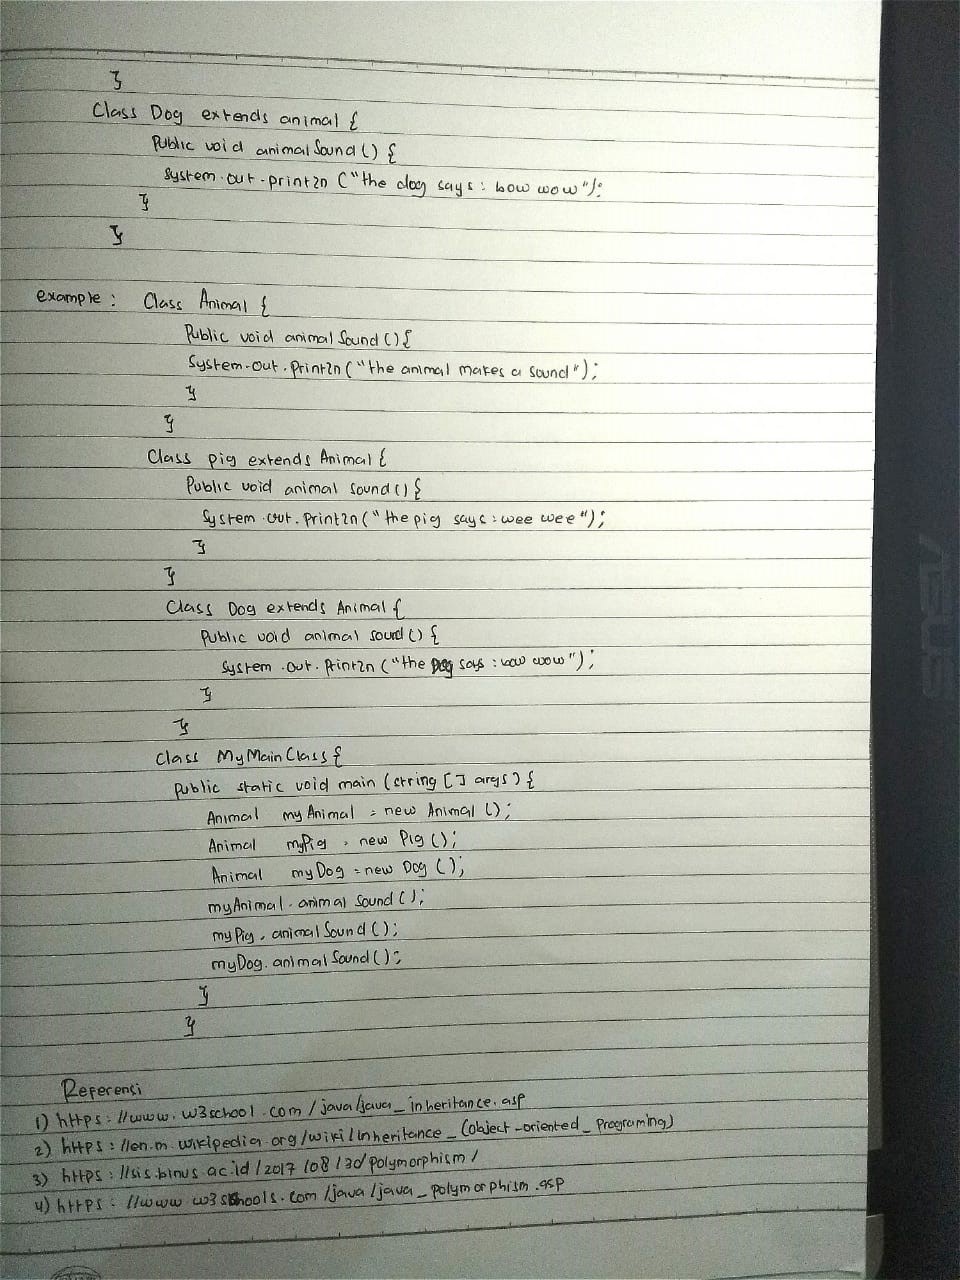 }
Class Dog extends animal {
Public void animalSound () {
System.out.println ("the dog says : bow wow");
}
}
example : Class Animal {
Public void animalSound () {
System.out.println ("the animal makes a sound");
}
}
Class pig extends Animal {
Public void animal Sound () {
System.out.println ("the pig says : wee wee");
}
}
Class Dog extends Animal {
Public void animal sound () {
System.out.println ("the Dog says : bow wow");
}
}
Class MyMainClass {
public static void main (string [] args) {
Animal myAnimal = new Animal ();
Animal myPig = new Pig ();
Animal myDog = new Dog ();
myAnimal.animal Sound ();
myPig.animalSound ();
myDog.animalSound ();
}
}
Referensi
1) https://www.w3school.com/java/java_inheritance.asp
2) https://en.m.wikipedia.org/wiki/Inheritance_(object-oriented_programing)
3) https://sis.binus.ac.id/2017/08/30/polymorphism/
4) https://www.w3schools.com/java/java_polymorphism.asp
ASUS